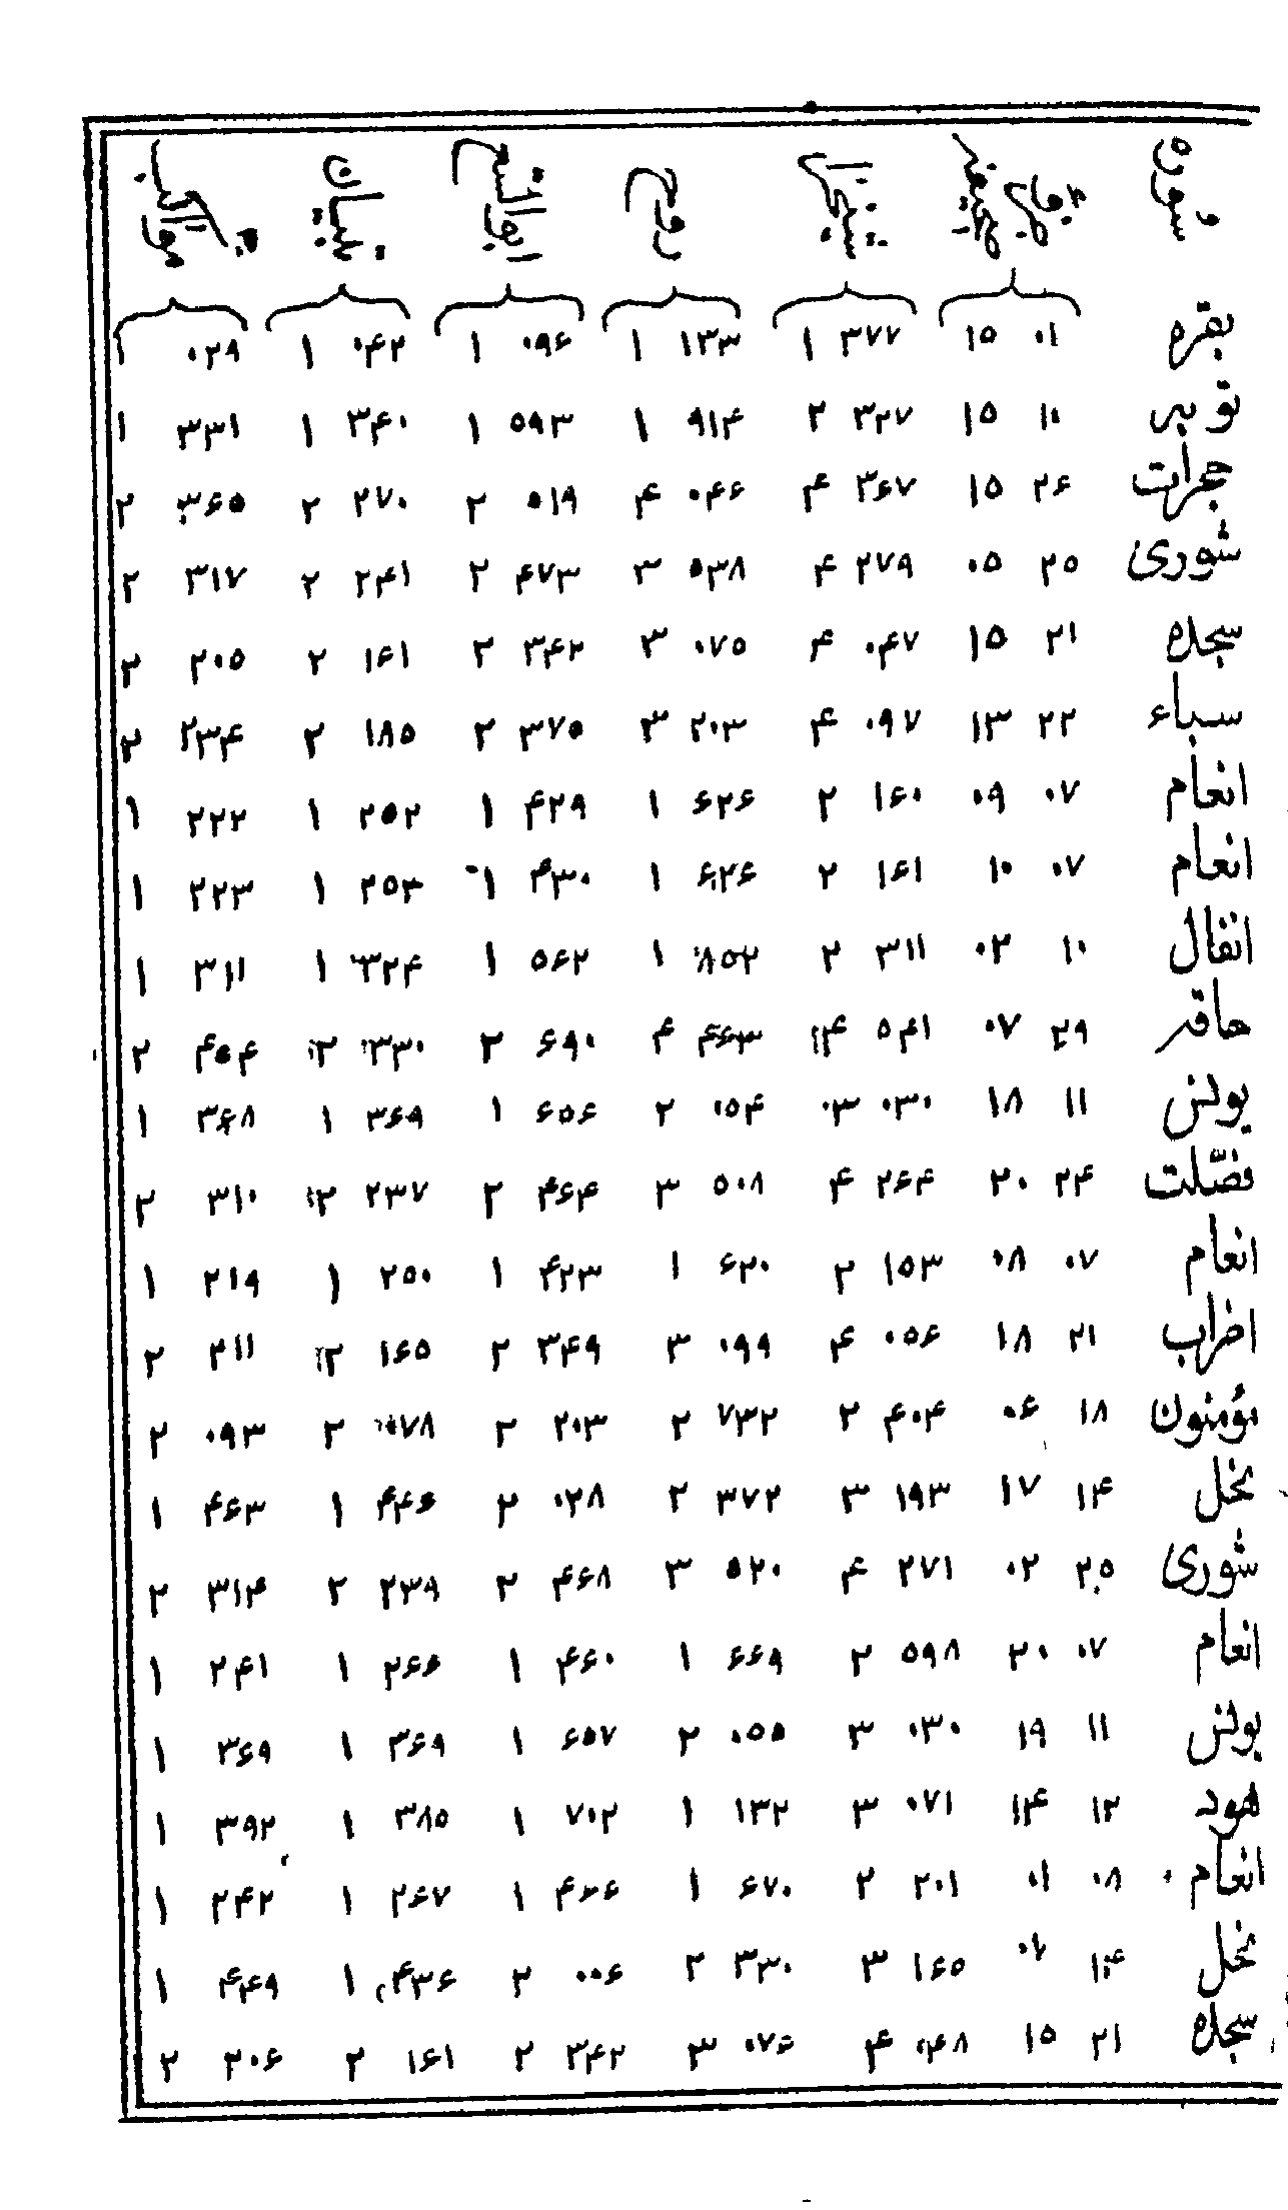 سوره روح تبیان
بقره ۰۱ ۱۵ ۳۷۷ ۱ ۱۳۳ ۱ ۰۹۶ ۱ ۰۴۲ ۱ ۰۲۹ ۱
توبہ ۱۰ ۱۵ ۳۲۷ ۲ ۹۱۴ ۱ ۵۹۳ ۱ ۳۴۰ ۱ ۳۳۱ ۱
حجرات ۲۶ ۱۵ ۳۶۷ ۴ ۰۴۶ ۴ ۵۱۹ ۲ ۲۷۰ ۲ ۳۶۵ ۲
شوری ۲۵ ۰۵ ۲۷۹ ۴ ۵۳۸ ۳ ۴۷۳ ۲ ۲۴۱ ۲ ۳۱۷ ۲
سجده ۲۱ ۱۵ ۰۴۷ ۴ ۰۷۵ ۳ ۳۴۲ ۲ ۱۶۱ ۲ ۲۰۵ ۲
سباء ۲۲ ۱۳ ۰۹۷ ۴ ۲۰۳ ۳ ۳۷۵ ۲ ۱۸۵ ۲ ۲۳۴ ۲
انعام ۰۷ ۰۹ ۱۶۰ ۲ ۶۲۶ ۱ ۴۲۹ ۱ ۲۵۲ ۱ ۲۲۲ ۱
انعام ۰۷ ۱۰ ۱۶۱ ۲ ۶۲۶ ۱ ۴۳۰ ۱ ۲۵۳ ۱ ۲۲۳ ۱
انفال ۱۰ ۰۲ ۳۱۱ ۲ ۸۵۲ ۱ ۵۶۲ ۱ ۳۲۴ ۱ ۳۱۱ ۱
حاقہ ۲۹ ۰۷ ۵۴۱ ۴ ۴۶۳ ۴ ۶۹۰ ۲ ۳۳۰ ۲ ۴۵۴ ۲
یونس ۱۱ ۱۸ ۰۳۰ ۳ ۰۵۴ ۲ ۶۵۶ ۱ ۳۶۹ ۱ ۳۶۸ ۱
فصّلت ۲۴ ۲۰ ۲۶۴ ۴ ۵۰۸ ۳ ۴۶۴ ۲ ۲۳۷ ۲ ۳۱۰ ۲
انعام ۰۷ ۰۸ ۱۵۳ ۲ ۶۲۰ ۱ ۴۲۳ ۱ ۲۵۰ ۱ ۲۱۹ ۱
احزاب ۲۱ ۱۸ ۰۵۶ ۴ ۰۹۹ ۳ ۳۴۹ ۲ ۱۶۵ ۲ ۲۱۱ ۲
مؤمنون ۱۸ ۰۶ ۴۰۴ ۲ ۷۳۲ ۲ ۲۰۳ ۲ ۰۷۸ ۲ ۰۹۳ ۲
نحل ۱۴ ۱۷ ۱۹۳ ۳ ۳۷۲ ۲ ۰۲۸ ۲ ۴۴۶ ۱ ۴۶۳ ۱
شوری ۲۵ ۰۲ ۲۷۱ ۴ ۵۲۰ ۳ ۴۶۸ ۲ ۲۳۹ ۲ ۳۱۴ ۲
انعام ۰۷ ۲۰ ۵۹۸ ۲ ۶۶۹ ۱ ۴۶۰ ۱ ۲۶۶ ۱ ۲۴۱ ۱
یونس ۱۱ ۱۹ ۰۳۰ ۳ ۰۵۵ ۲ ۶۵۷ ۱ ۳۶۹ ۱ ۳۶۹ ۱
هود ۱۲ ۱۴ ۰۷۱ ۳ ۱۳۲ ۱ ۷۰۲ ۱ ۳۸۵ ۱ ۳۹۲ ۱
انعام ۰۸ ۰۱ ۲۰۱ ۲ ۶۷۰ ۱ ۴۶۶ ۱ ۲۶۷ ۱ ۲۴۲ ۱
نحل ۱۴ ۱۶۵ ۳ ۳۳۰ ۲ ۰۰۶ ۲ ۴۳۶ ۱ ۴۴۹ ۱
سجده ۲۱ ۱۵ ۰۴۸ ۴ ۰۷۶ ۳ ۳۴۲ ۲ ۱۶۱ ۲ ۲۰۶ ۲